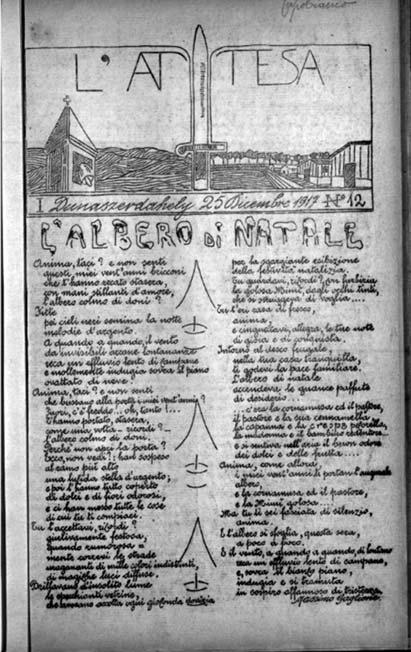 L'ATTESA
I Dunaszerdahely 25 Dicembre 1917 N° 12
L'ALBERO di NATALE
Anima, taci? e non senti
questi miei vent'anni bricconi
che t'hanno recato stasera,
con mani stillanti d'amore,
l'albero colmo di doni?
pei cieli neri semina la notte
melodie d'argento.
A quando a quando, il vento
da invisibili arcane lontananze
reca un effluvio lento di campane
e mollemente indugia sovra il piano
ovattato di neve!
Anima, taci? e non senti
che bussano alla porta i miei vent'anni?
Fuori, c'è freddo... oh, tanto!...
T'hanno portato, stasera,
come una volta, ricordi?
l'albero colmo di doni.
Perchè non apri la porta?
Ecco, non vedi? han sospeso
al ramo più alto
una lucida stella d'argento;
e poi l'hanno tutto coperto
di dolci e di fiori odorosi,
e ci han messo tutte le cose
di cui tu ti compiaci.
Tu l'accettavi, ricordi?
giulivamente festosa,
quando rumorosa
mente correvi le strade
inseguenti di mille colori indistinti,
di magiche luci diffuse.
Brillavano d'insolito lume
le specchianti vetrine,
che avevano accolta ogni gioconda dovizia
per la sgargiante esibizione
della festività natalizia.
Tu guardavi, ricordi? con furbizia
di golosa Mimì, dagli occhi tinti,
che si struggeva di voglia....
Eri l'eri casa di fresco,
anima,
e cinguettavi, allegra, le tue note
di gioia e di conquista.
Intorno al desco frugale,
nella tua casa tranquilla,
ti godevi la pace familiare.
L'albero di natale
accendeva le guance paffute
di desiderio...
...c'era la cornamusa ed il pastore,
il pastore e la sua cennamella
la capanna e la poverella,
la madonna e il bambino redentore...
e si sentiva nell'aria il buon odore
dei dolci e delle frutta....
Anima, come allora,
i miei vent'anni ti portan l'augurale
albero,
e la cornamusa ed il pastore
e la Mimì golosa...
Ma tu ti sei fasciata di silenzio,
anima
E l'albero si sfoglia, questa sera,
a poco.
E il vento, a quando a quando, di lontano
reca un effluvio lento di campane,
e, sovra il bianco piano,
indugia e si tramuta
in sospiro affannoso di tristezza.